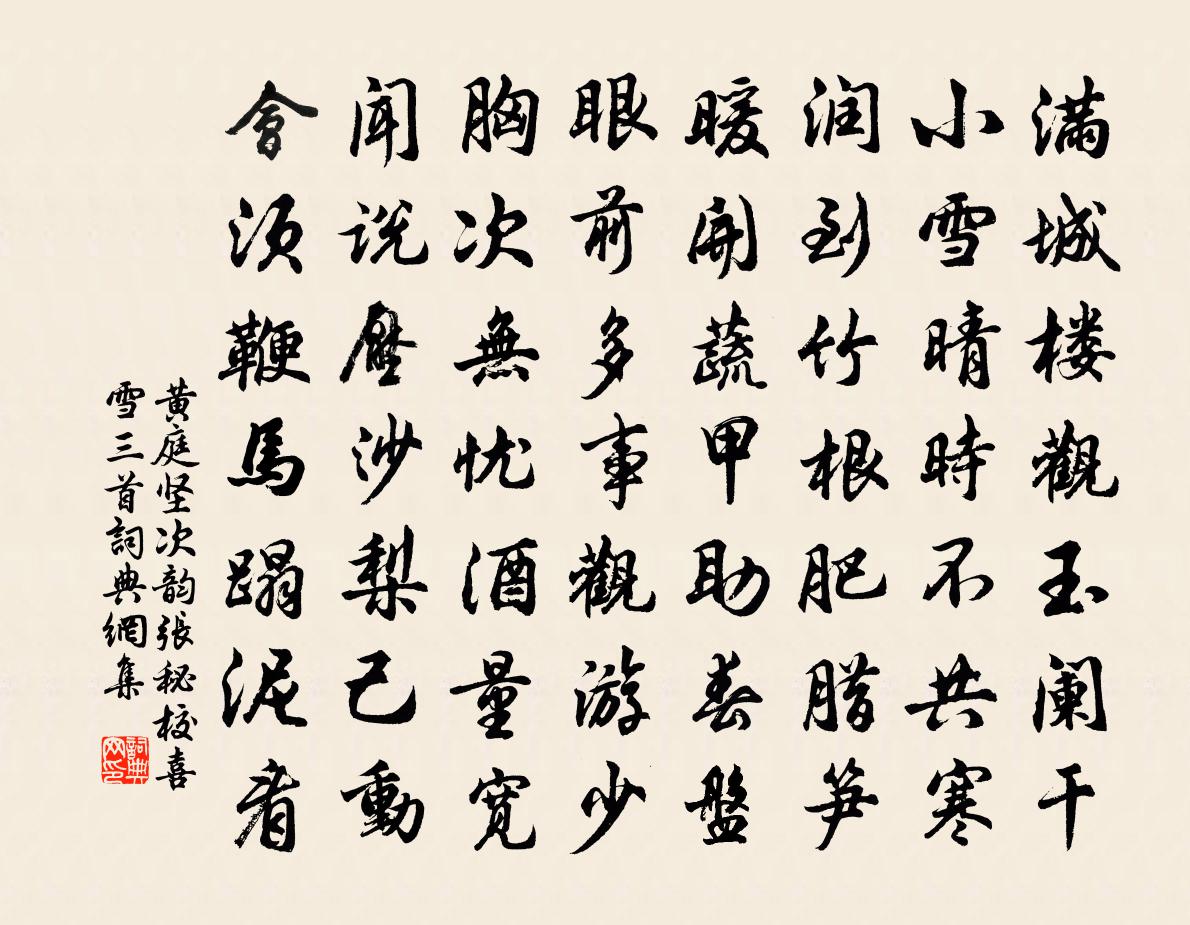 满城楼觀玉阑干
小雪晴時不共寒
润到竹根肥腊笋
暖開蔬甲助春盤
眼前多事觀游少
胸次無忧酒量寬
闻说壓沙梨己動
會须鞭馬蹋泥看
黄庭坚次韵張秘校喜
雪三首詞典網集
詞典網印